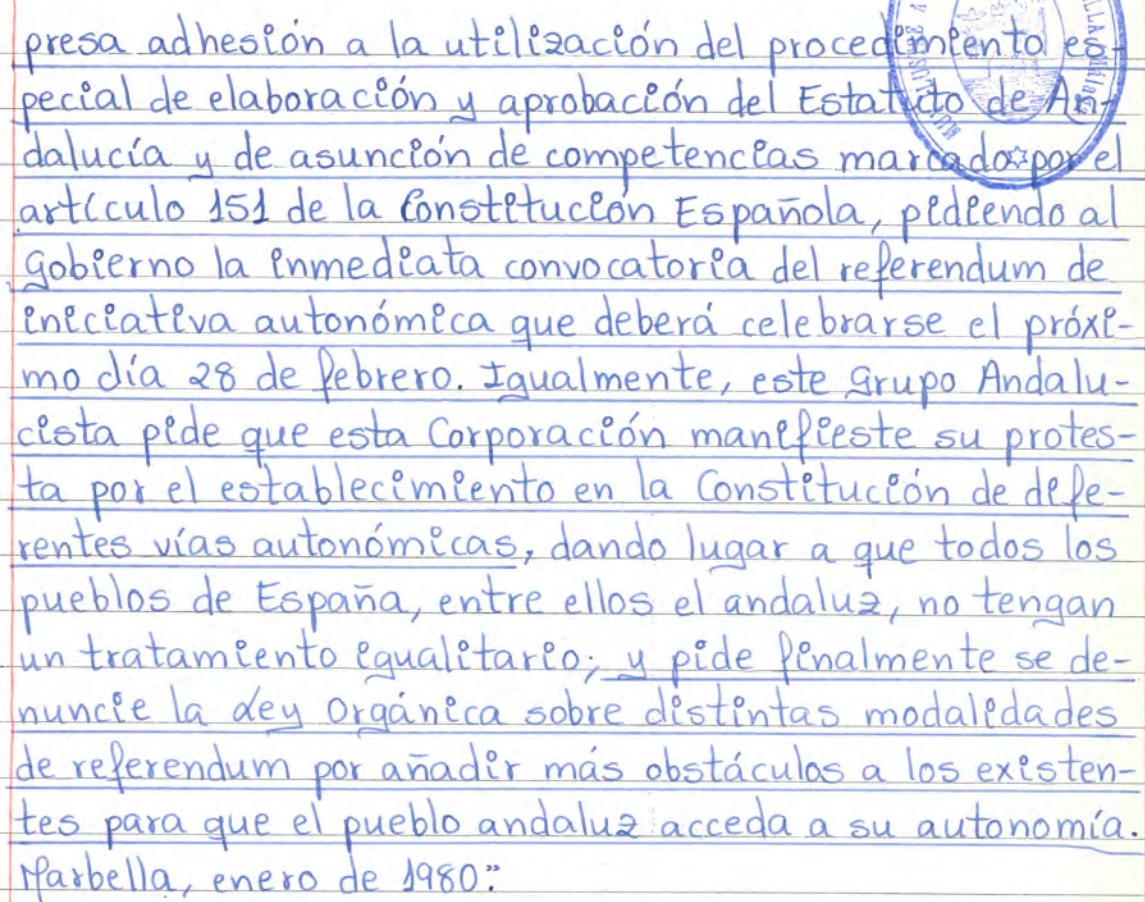 presa adhesión a la utilización del procedimiento es-
pecial de elaboración y aprobación del Estatuto de An-
dalucía y de asunción de competencias marcado por el
artículo 151 de la Constitución Española, pidiendo al
Gobierno la inmediata convocatoria del referendum de
iniciativa autonómica que deberá celebrarse el próxi-
mo día 28 de febrero. Igualmente, este Grupo Andalu-
cista pide que esta Corporación manifieste su protes-
ta por el establecimiento en la Constitución de dife-
rentes vías autonómicas, dando lugar a que todos los
pueblos de España, entre ellos el andaluz, no tengan
un tratamiento igualitario; y pide finalmente se de-
nuncie la Ley Orgánica sobre distintas modalidades
de referendum por añadir más obstáculos a los existen-
tes para que el pueblo andaluz acceda a su autonomía.
Marbella, enero de 1980."